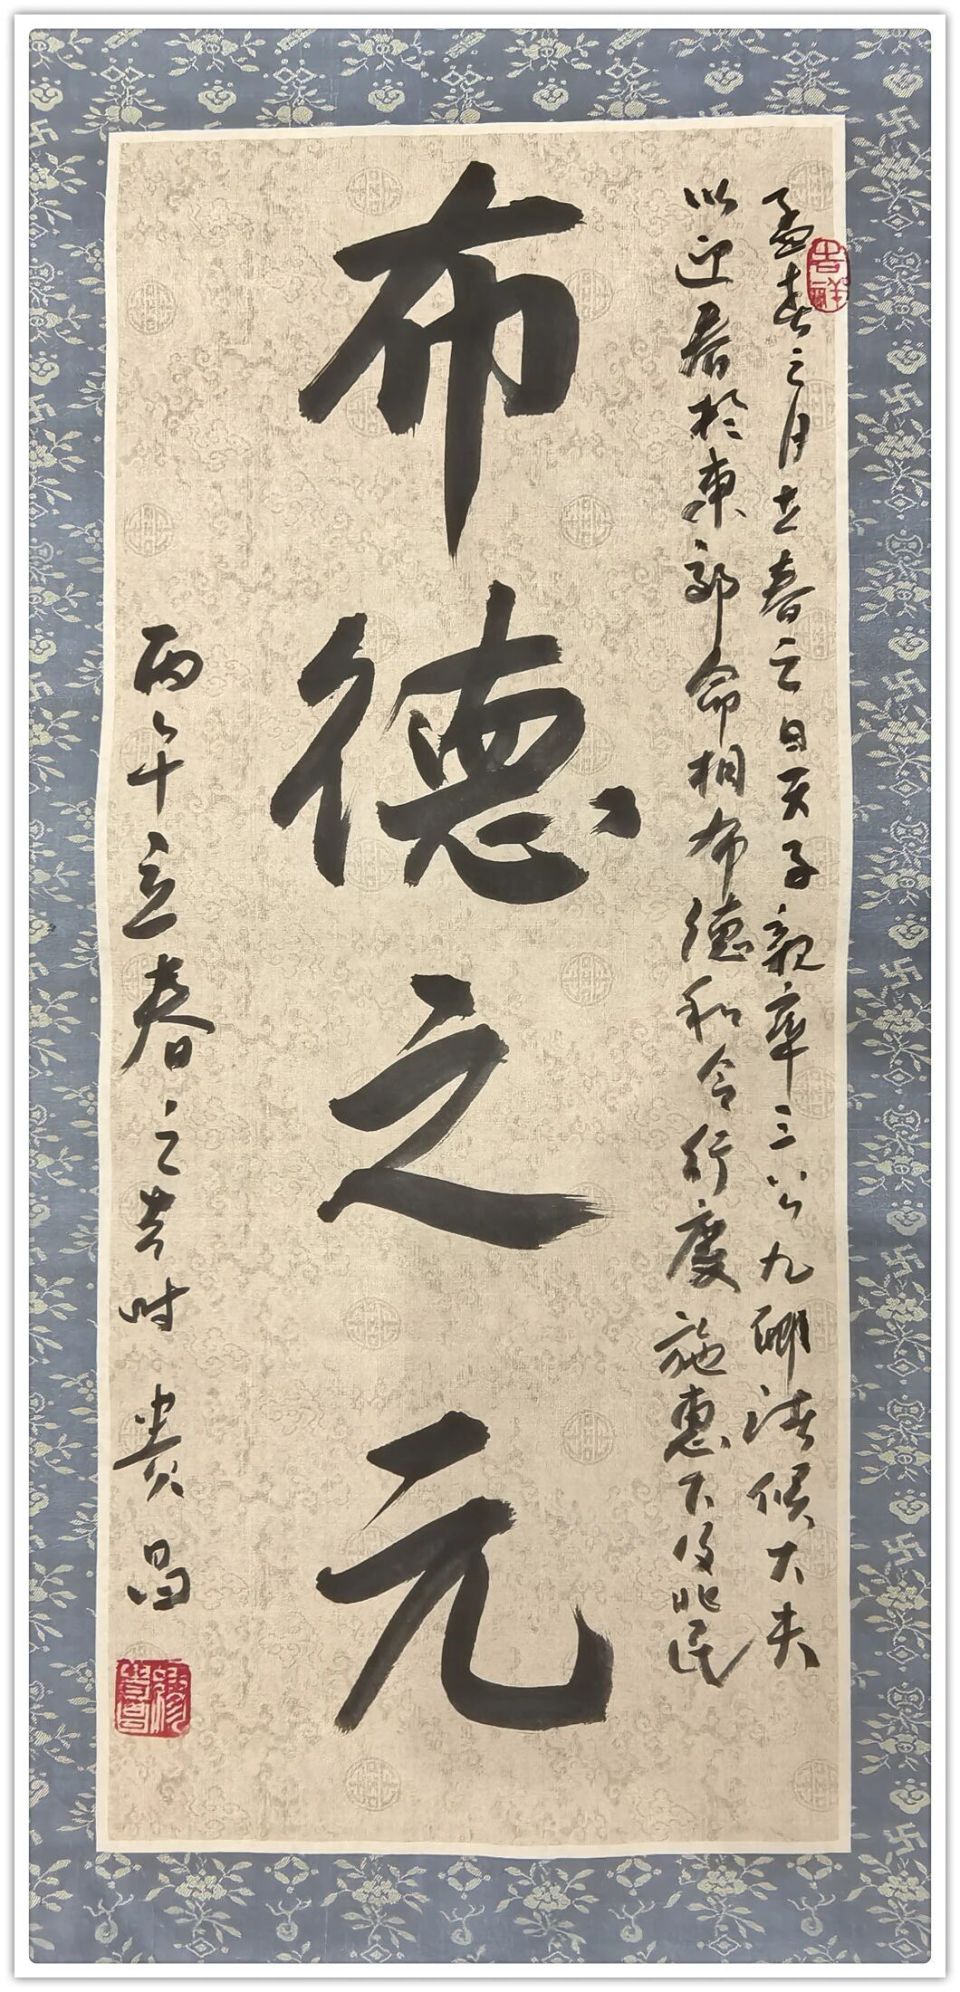 孟春之月立春之日天子親率三公九卿諸侯大夫
以迎春於東郊命相布德和令行慶施惠下及兆民
布德之元
丙午立春之吉时 贵昌
吉祥